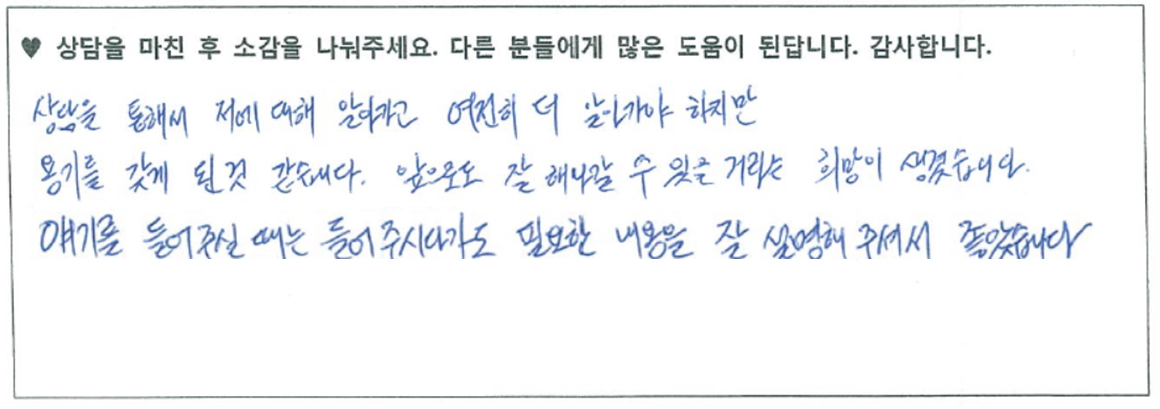 ♥ 상담을 마친 후 소감을 나눠주세요. 다른 분들에게 많은 도움이 된답니다. 감사합니다.
상담을 통해서 저에 대해 알아가고 여전히 더 알아가야 하지만
용기를 갖게 된 것 같습니다. 앞으로도 잘 해나갈 수 있을 거라는 희망이 생겼습니다.
얘기를 들어주실 때는 들어주시다가도 필요한 내용을 잘 설명해 주셔서 좋았습니다